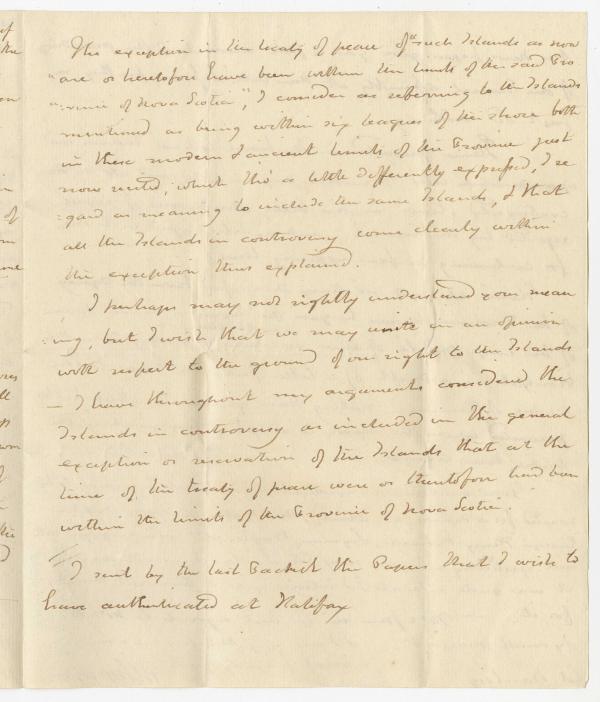 The exception in the treaty of peace of "such Islands as now
"are or heretofore have been within the limits of the said Pro
":vince of Nova Scotia", I consider as referring to the Islands
mentioned as being within six leagues of the shore both
in these modern & ancient limits of the Province just
now recited, which tho' a little differently expressed, I re
:gard as meaning to include the same Islands, & that
all the Islands in controversy come clearly within
the exception thus explained.
I perhaps may not rightly understand your mean
:ing, but I wish that we may unite in an opinion
with respect to the ground of our right to the Islands
— I have throughout my arguments considered the
Islands in controversy as included in the general
exception or reservation of the Islands that at the
time of the treaty of peace were or theretofore had been
within the limits of the Province of Nova Scotia.
I sent by the last Packet the Papers that I wish to
have authenticated at Halifax
of
the
of